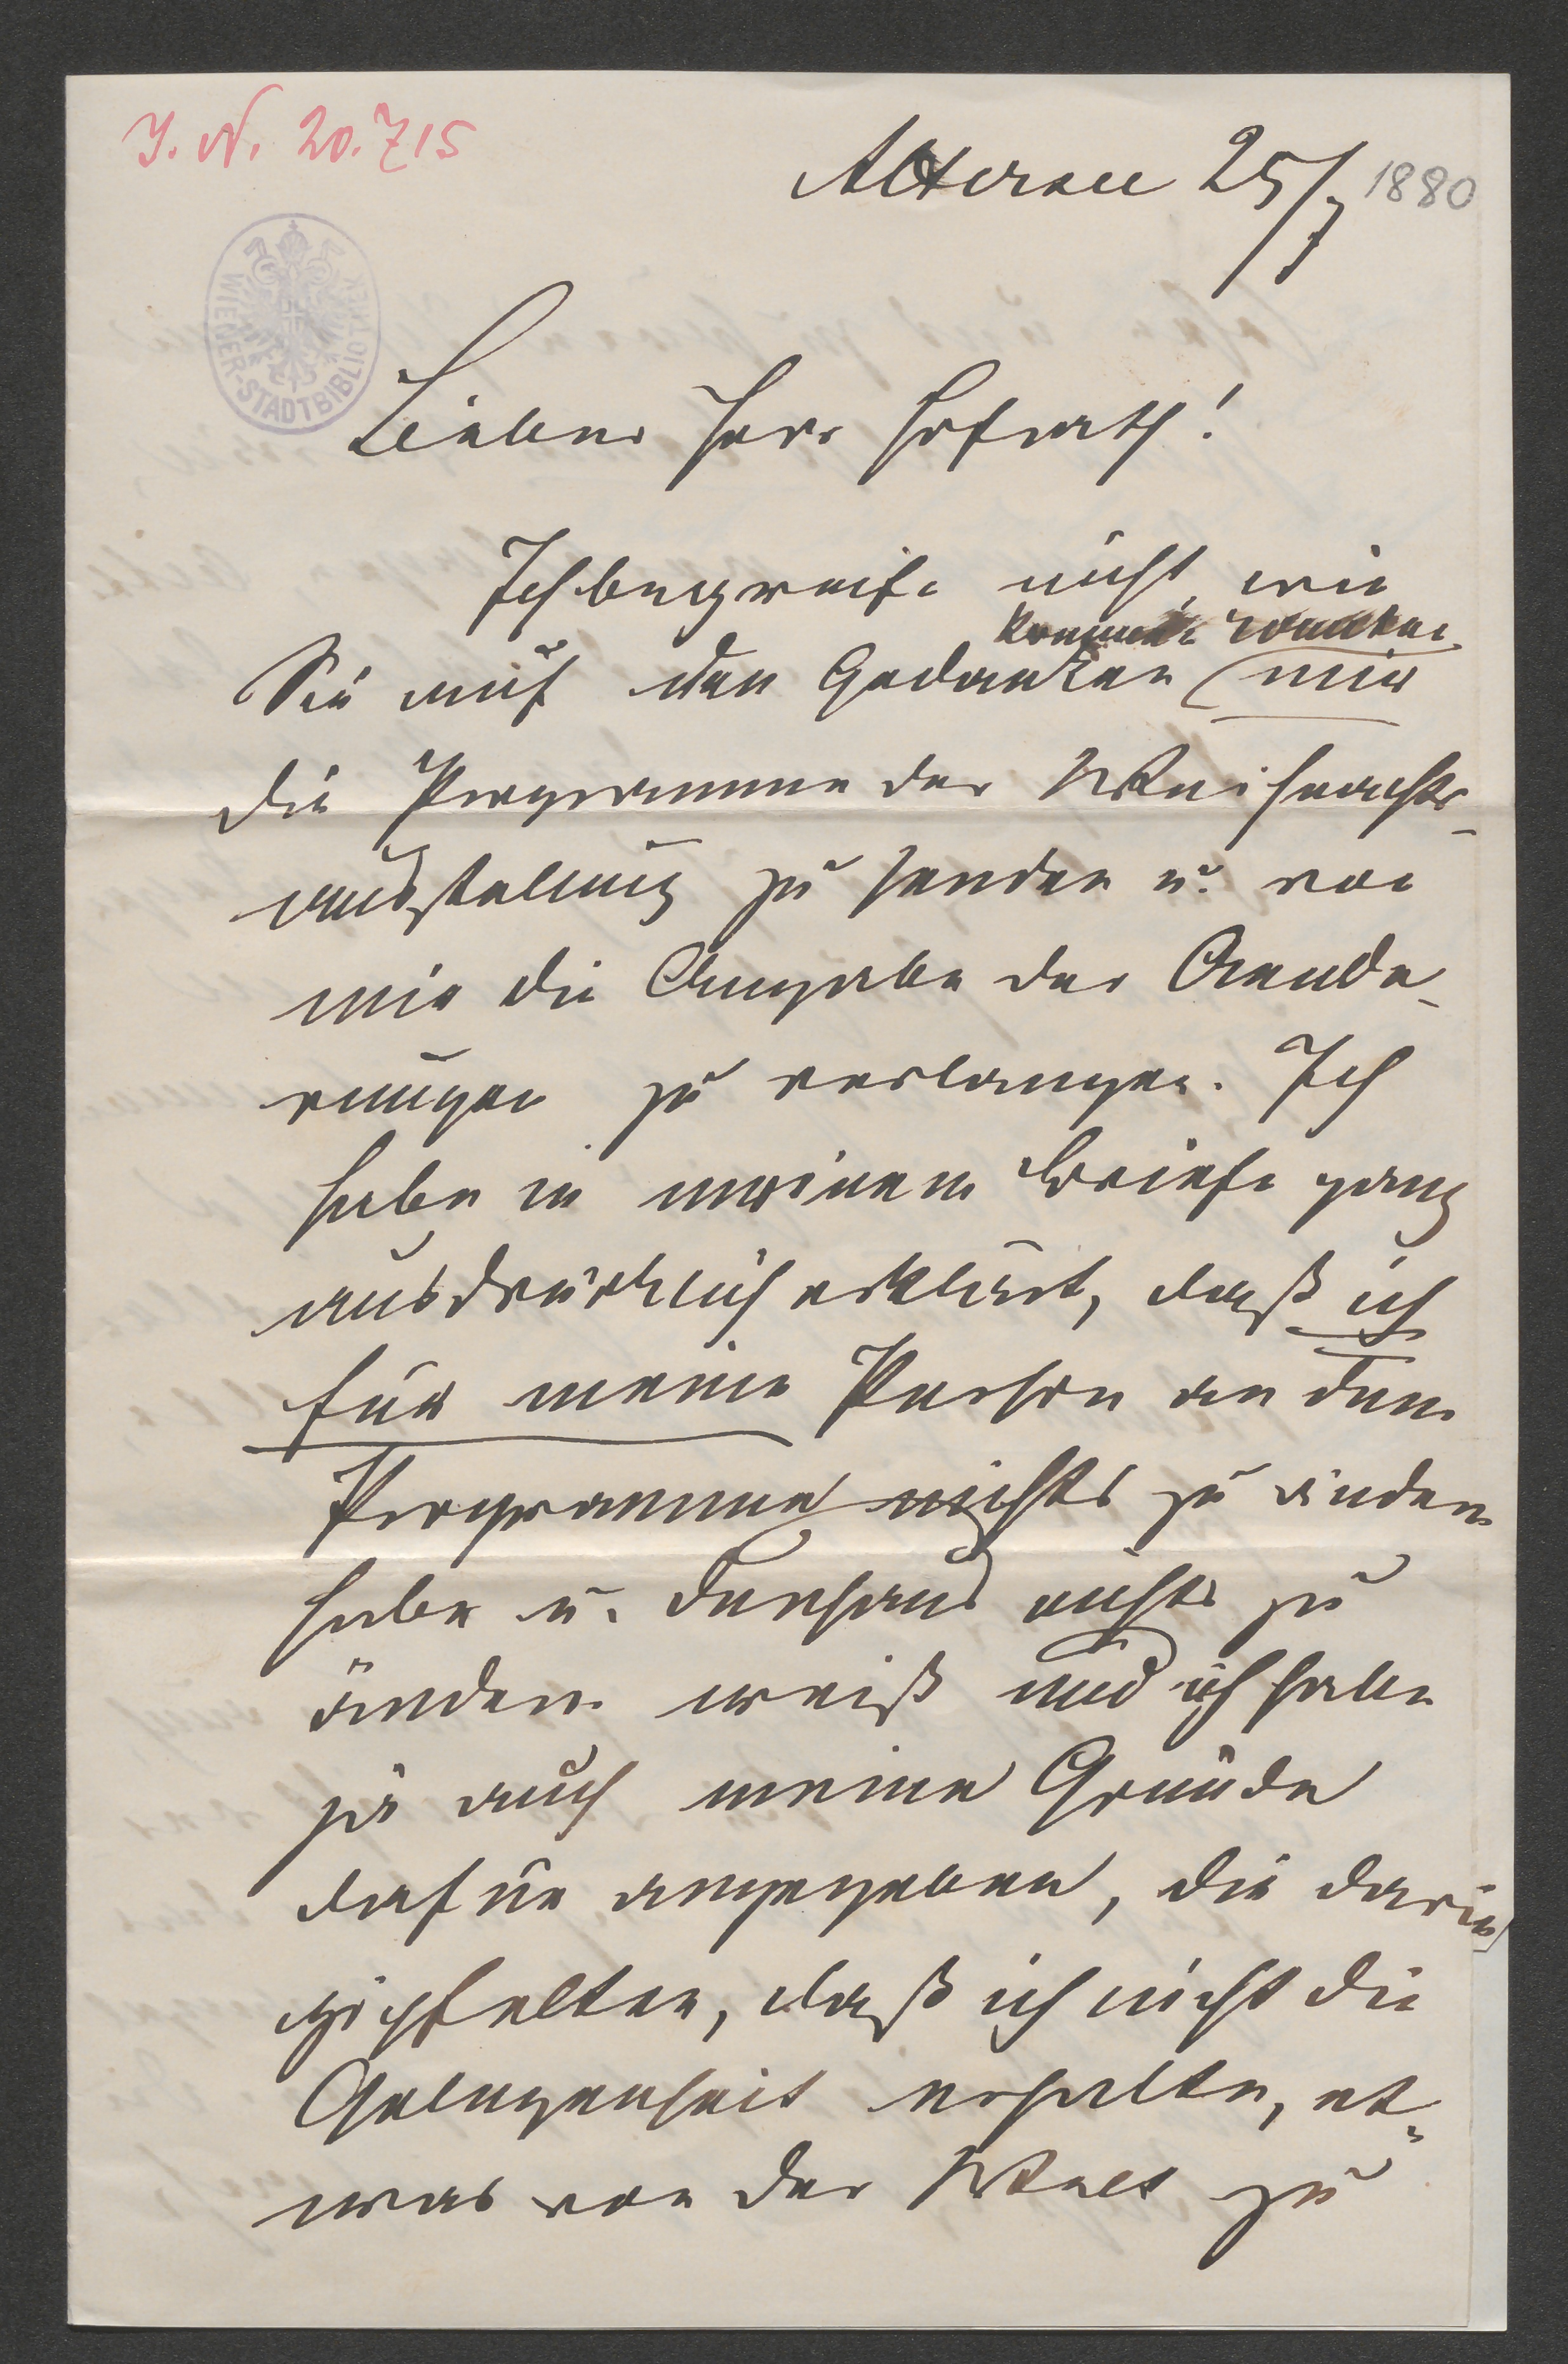 J. N. 20.715
Attersee 25/7 1880
WIENER-STADTBIBLIOTHEK
Lieber Herr Hofrath!
Ich begreife nicht, wie
kommen konnten
Sie auf den Gedanken mir
die Programme der Weihnachts-
ausstellung zu senden u. von
mir die Angabe der Aende-
rungen zu verlangen. Ich
habe in meinem Briefe ganz
ausdrücklich erklärt, daß ich
für meine Person an dem
Programme nichts zu ändern
habe u. durchaus nichts zu
ändern weiß und ich habe
ja auch meine Gründe
dafür angegeben, die darin
gipfelten, daß ich nicht die
Gelegenheit erhalte, et-
was von der Welt zu